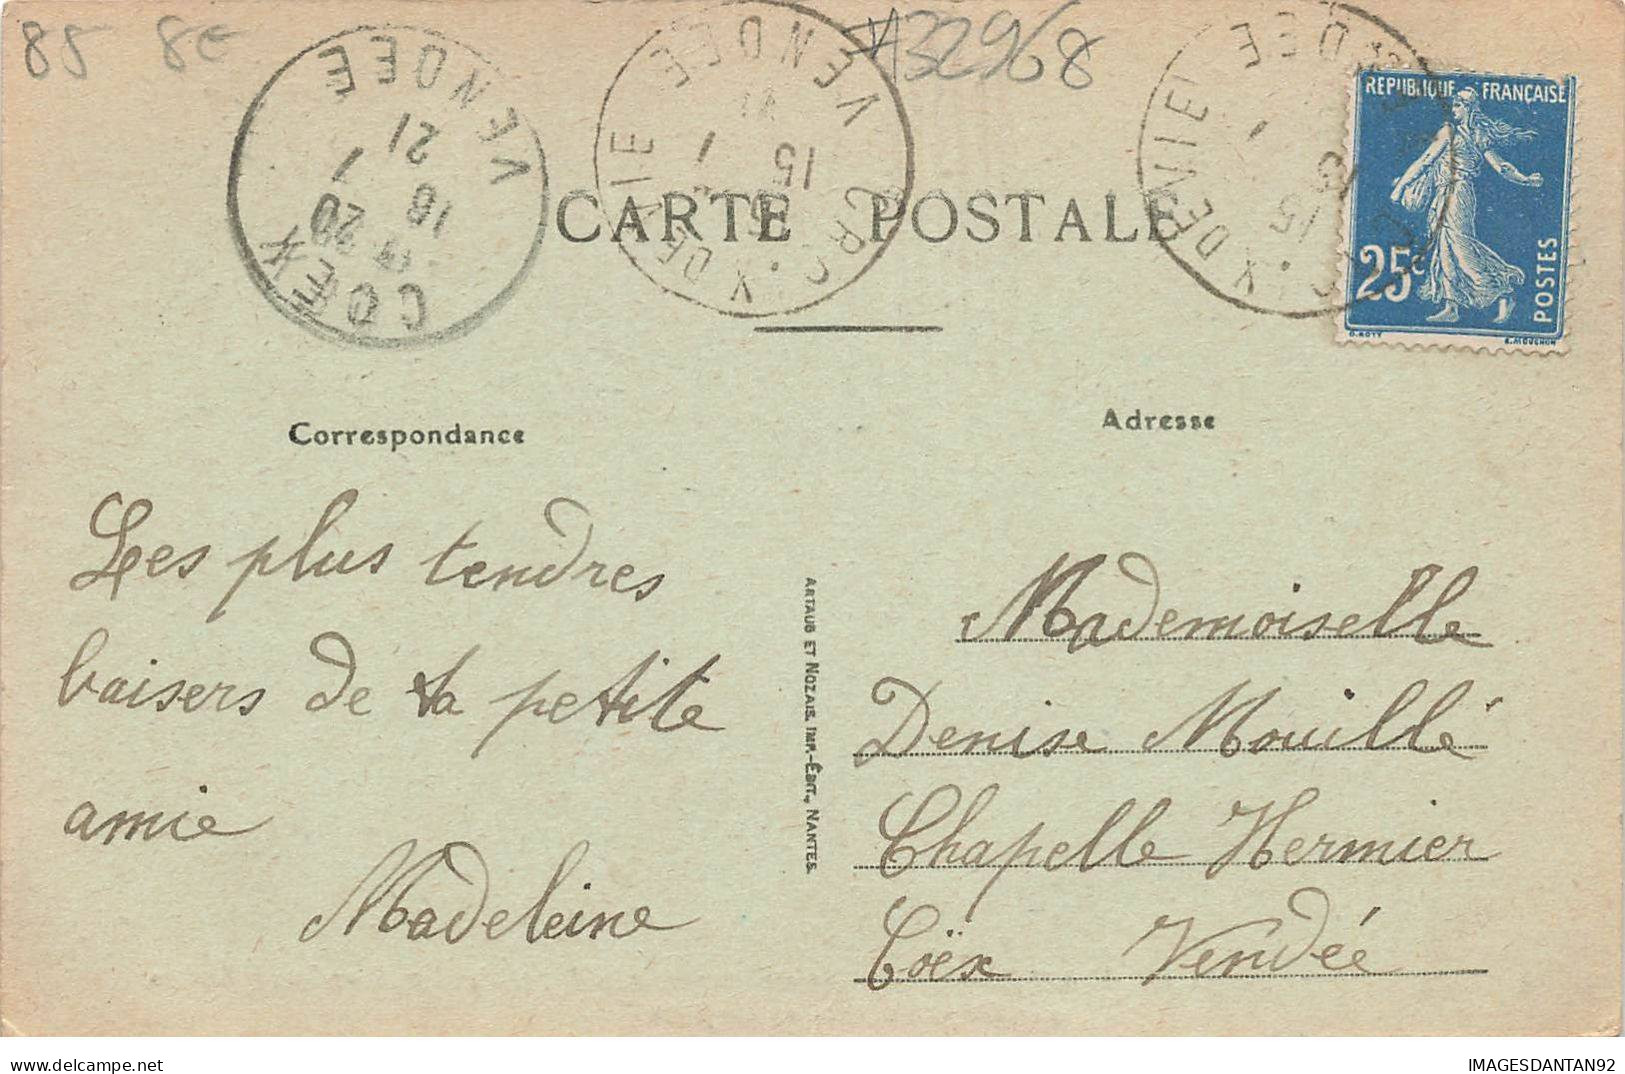 85 8€ #32968
COEX VENDEE
18 20
16 1
21
CRCIX DE VIE VENDEE
15
1
CRCIX DE VIE VENDEE
15
1
REPUBLIQUE FRANÇAISE
25c
POSTES
O. ROTY E. MOUCHON
CARTE POSTALE
Correspondance
Adresse
Les plus tendres
baisers de ta petite
amie
Madeleine
ARTAUD ET NOZAIS. IMP.-ÉDIT., NANTES.
Mademoiselle
Denise Mouillé
Chapelle Hermier
Coëx Vendée
IMAGESDANTAN92